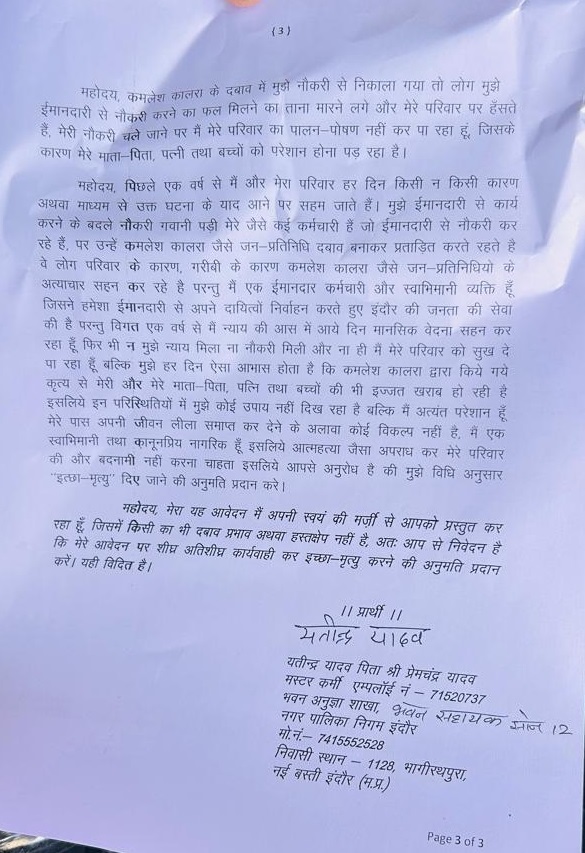 (3)
महोदय, कमलेश कालरा के दबाव में मुझे नौकरी से निकाला गया तो लोग मुझे
ईमानदारी से नौकरी करने का फल मिलने का ताना मारने लगे और मेरे परिवार पर हँसते
हैं, मेरी नौकरी चले जाने पर मैं मेरे परिवार का पालन-पोषण नहीं कर पा रहा हूं, जिसके
कारण मेरे माता-पिता, पत्नी तथा बच्चों को परेशान होना पड़ रहा है।
महोदय, पिछले एक वर्ष से मैं और मेरा परिवार हर दिन किसी न किसी कारण
अथवा माध्यम से उक्त घटना के याद आने पर सहम जाते हैं। मुझे ईमानदारी से कार्य
करने के बदले नौकरी गवानी पड़ी मेरे जैसे कई कर्मचारी हैं जो ईमानदारी से नौकरी कर
रहे हैं, पर उन्हें कमलेश कालरा जैसे जन-प्रतिनिधि दबाव बनाकर प्रताड़ित करते रहते है
वे लोग परिवार के कारण, गरीबी के कारण कमलेश कालरा जैसे जन-प्रतिनिधियो के
अत्याचार सहन कर रहे है परन्तु मैं एक ईमानदार कर्मचारी और स्वाभिमानी व्यक्ति हूँ
जिसने हमेशा ईमानदारी से अपने दायित्वों निर्वाहन करते हुए इंदौर की जनता की सेवा
की है परन्तु विगत एक वर्ष से मैं न्याय की आस में आये दिन मानसिक वेदना सहन कर
रहा हूँ फिर भी न मुझे न्याय मिला ना नौकरी मिली और ना ही मैं मेरे परिवार को सुख दे
पा रहा हूँ बल्कि मुझे हर दिन ऐसा आभास होता है कि कमलेश कालरा द्वारा किये गये
कृत्य से मेरी और मेरे माता-पिता, पत्नि तथा बच्चों की भी इज्जत खराब हो रही है
इसलिये इन परिस्थितियों में मुझे कोई उपाय नहीं दिख रहा है बल्कि मैं अत्यंत परेशान हूँ
मेरे पास अपनी जीवन लीला समाप्त कर देने के अलावा कोई विकल्प नहीं है, मैं एक
स्वाभिमानी तथा कानूनप्रिय नागरिक हूँ इसलिये आत्महत्या जैसा अपराध कर मेरे परिवार
की और बदनामी नहीं करना चाहता इसलिये आपसे अनुरोध है की मुझे विधि अनुसार
"इत्छा-मृत्यु" दिए जाने की अनुमति प्रदान करे।
महोदय, मेरा यह आवेदन मैं अपनी स्वयं की मर्ज़ी से आपको प्रस्तुत कर
रहा हूँ, जिसमें किसी का भी दबाव प्रभाव अथवा हस्तक्षेप नहीं है, अतः आप से निवेदन है
कि मेरे आवेदन पर शीघ्र अतिशीघ्र कार्यवाही कर इच्छा-मृत्यु करने की अनुमति प्रदान
करें। यही विदित है।
।। प्रार्थी ।।
यतीन्द्र यादव
यतीन्द्र यादव पिता श्री प्रेमचंद्र यादव
मस्टर कर्मी एम्पलॉई नं – 71520737
भवन अनुज्ञा शाखा, भवन सहायक झोन 12
नगर पालिका निगम इंदौर
मो.नं.– 7415552528
निवासी स्थान – 1128, भागीरथपुरा,
नई बस्ती इंदौर (म.प्र.)
Page 3 of 3